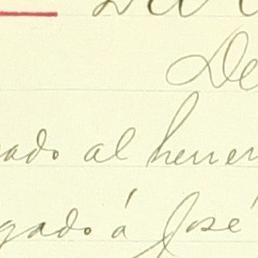 De
ado al herrer
gado á José